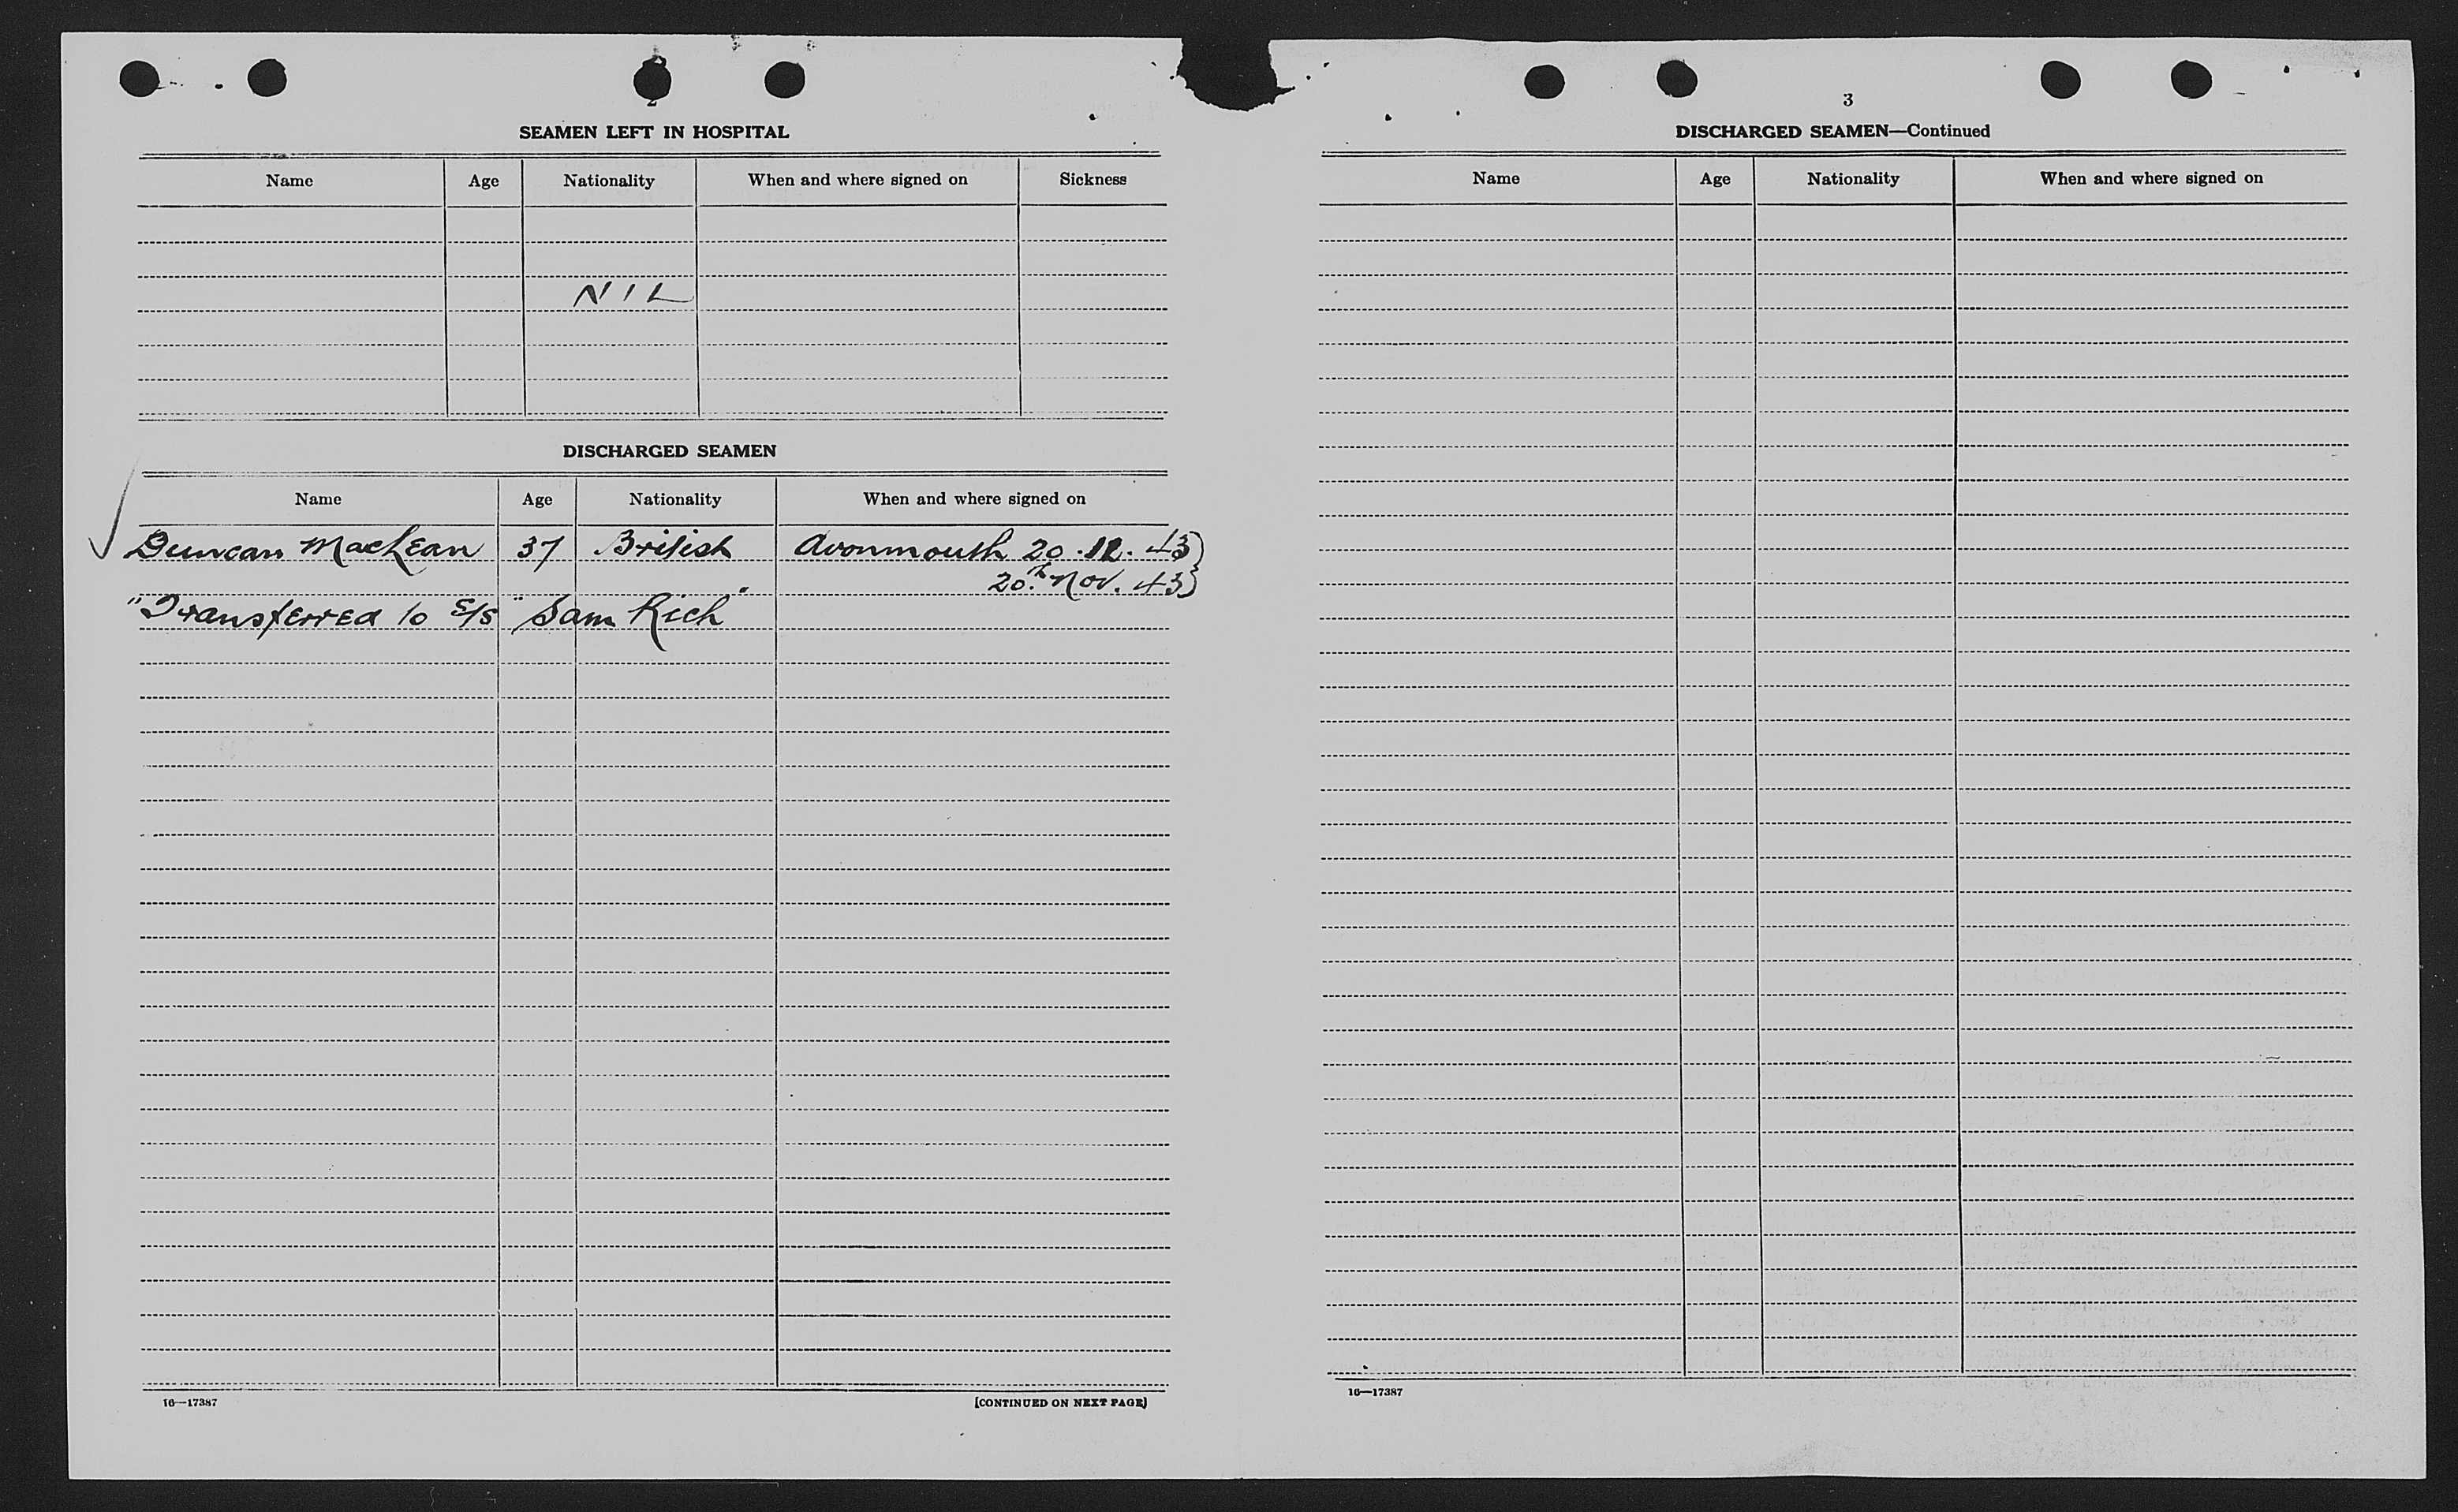 2
SEAMEN LEFT IN HOSPITAL
Name Age Nationality When and where signed on Sickness
NIL
DISCHARGED SEAMEN
Name Age Nationality When and where signed on
Duncan MacLean 37 British Avonmouth 20.12.43)
20th Nov. 43)
"Transferred to S/S "Sam Rich"
16—17387 [CONTINUED ON NEXT PAGE]
3
DISCHARGED SEAMEN—Continued
Name Age Nationality When and where signed on
16—17387